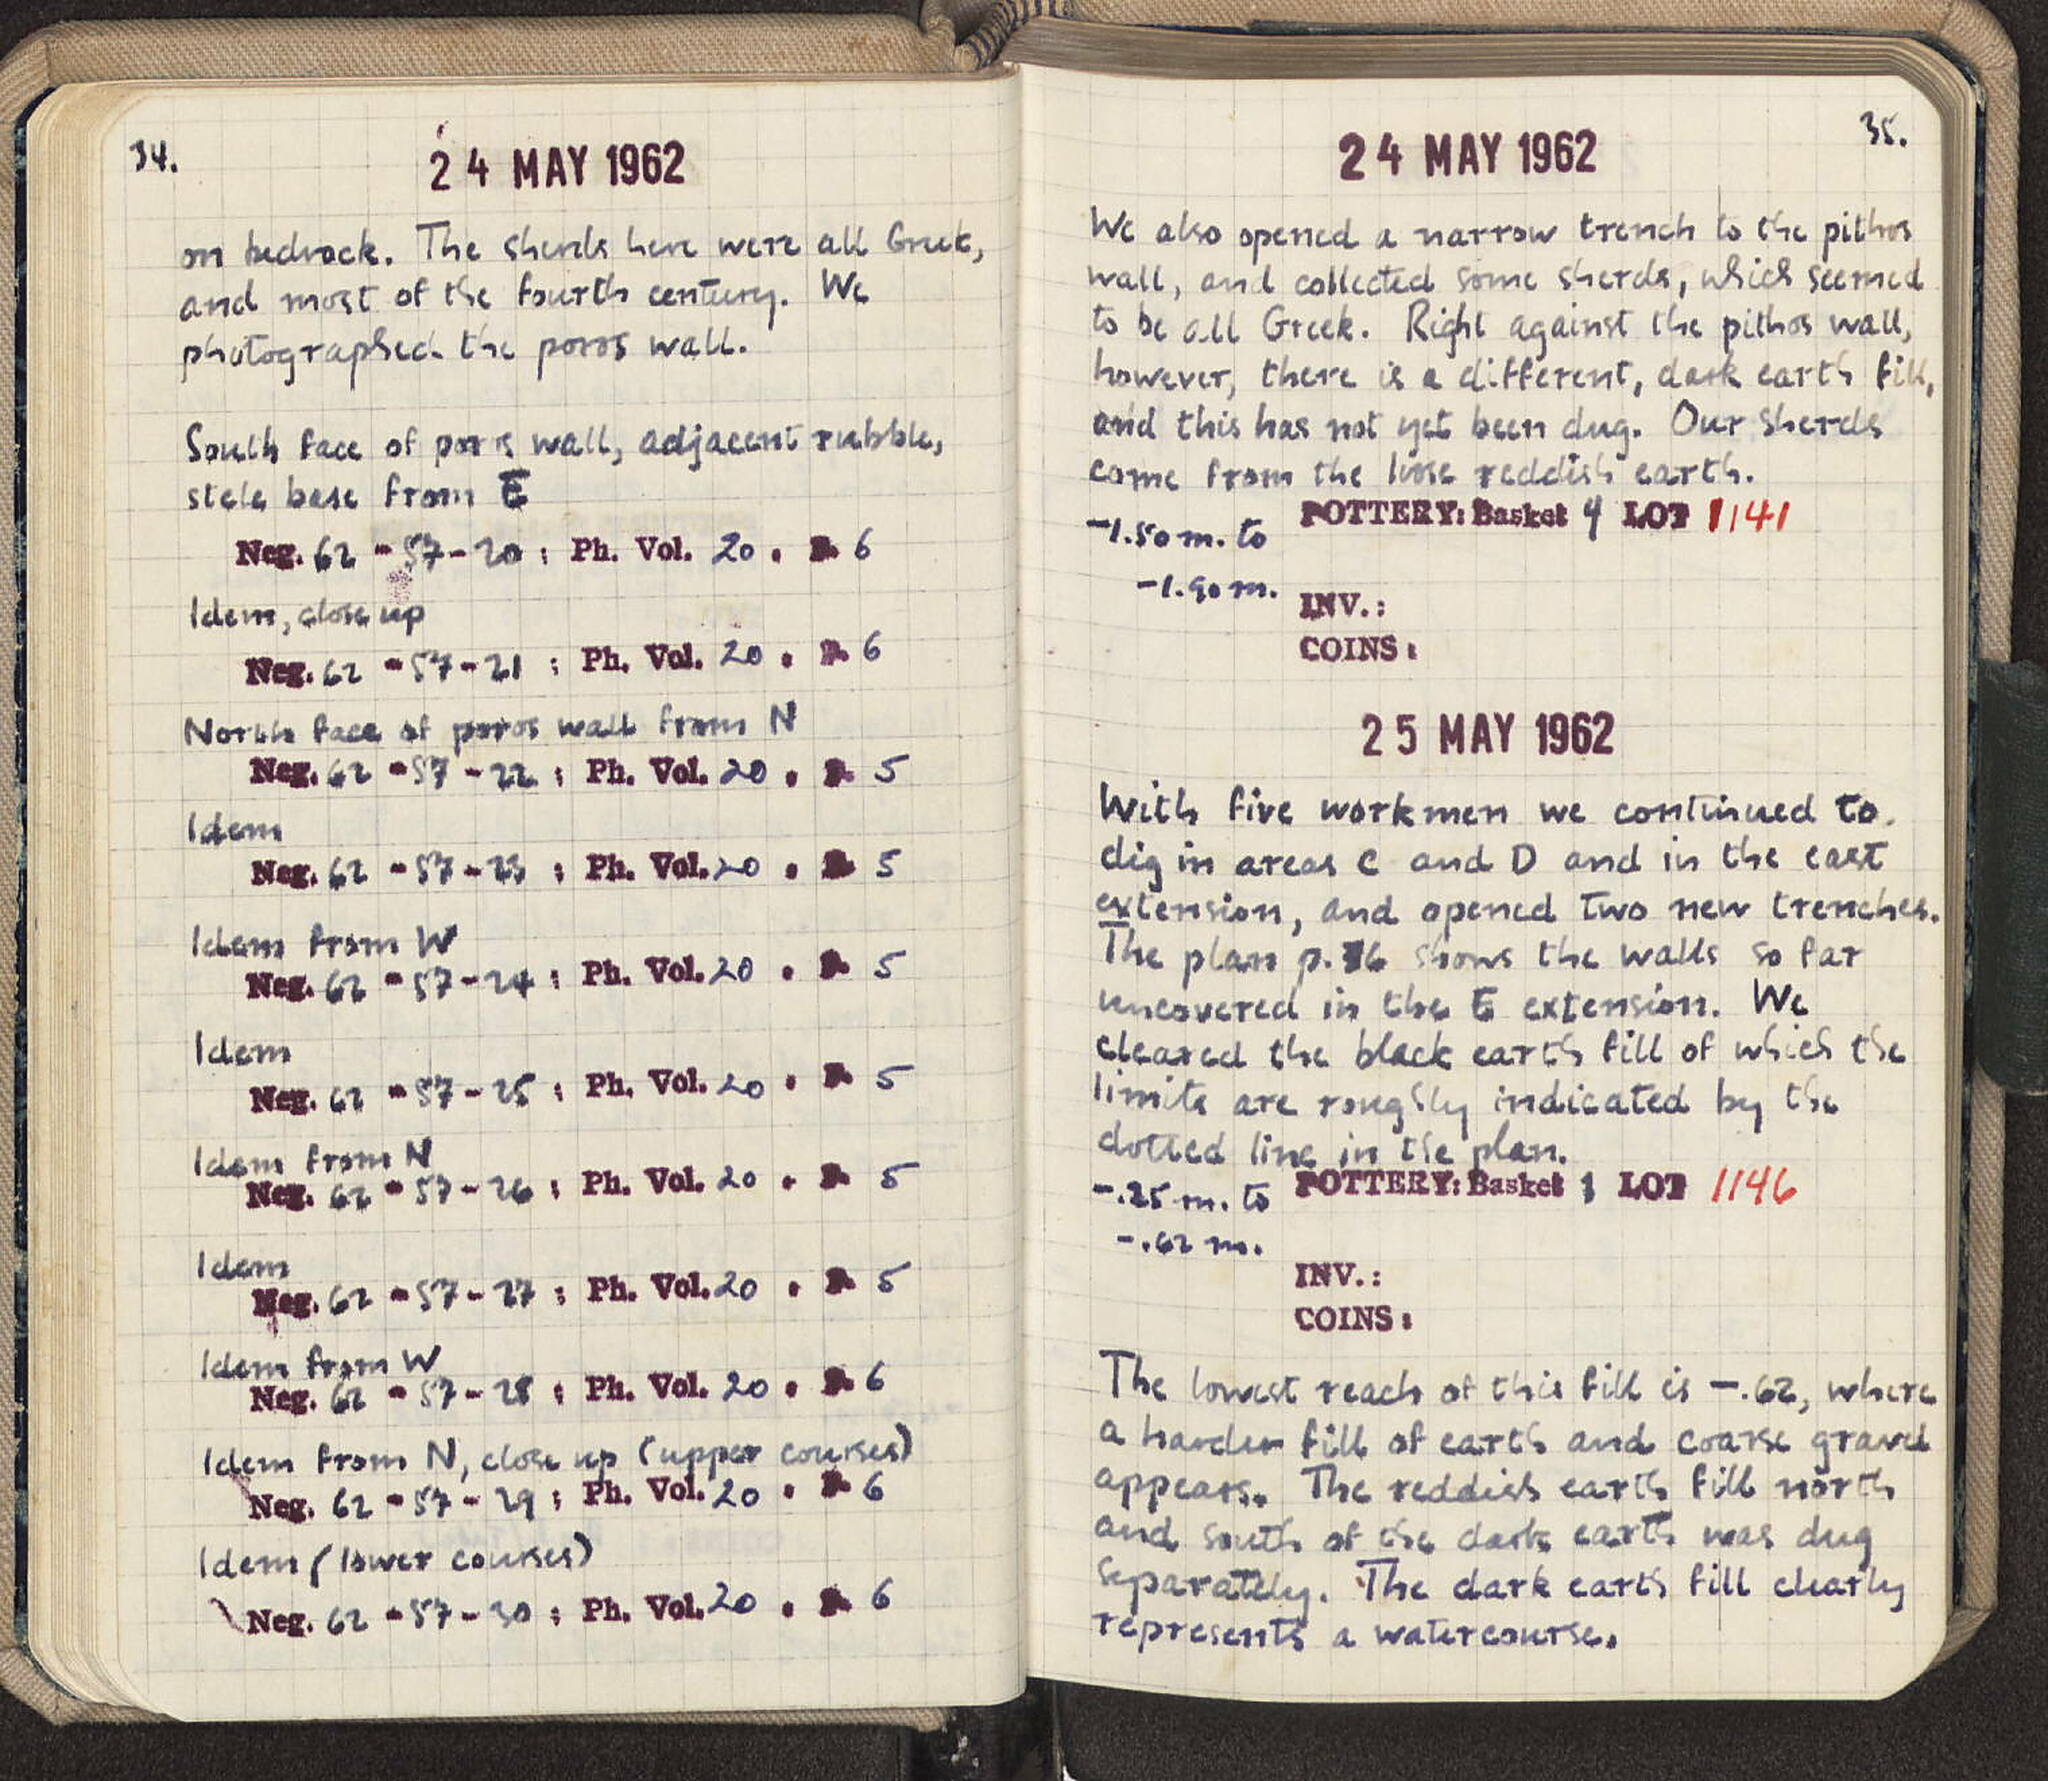 34.
24 MAY 1962
on bedrock. The sherds here were all Greek,
and most of the fourth century. We
photographed the poros wall.
South face of poros wall, adjacent rubble,
stele base from E
Neg. 62 - 57 - 20 ; Ph. Vol. 20 . P. 6
Idem, close up
Neg. 62 - 57 - 21 ; Ph. Vol. 20 . P. 6
North face of poros wall from N
Neg. 62 - 57 - 22 ; Ph. Vol. 20 . P. 5
Idem
Neg. 62 - 57 - 23 ; Ph. Vol. 20 . P. 5
Idem from W
Neg. 62 - 57 - 24 ; Ph. Vol. 20 . P. 5
Idem
Neg. 62 - 57 - 25 ; Ph. Vol. 20 . P. 5
Idem from N
Neg. 62 - 57 - 26 ; Ph. Vol. 20 . P. 5
Idem
Neg. 62 - 57 - 27 ; Ph. Vol. 20 . P. 5
Idem from W
Neg. 62 - 57 - 28 ; Ph. Vol. 20 . P. 6
Idem from N, close up (upper courses)
Neg. 62 - 57 - 29 ; Ph. Vol. 20 . P. 6
Idem (lower courses)
Neg. 62 - 57 - 30 ; Ph. Vol. 20 . P. 6
35.
24 MAY 1962
We also opened a narrow trench to the pithos
wall, and collected some sherds, which seemed
to be all Greek. Right against the pithos wall,
however, there is a different, dark earth fill,
and this has not yet been dug. Our sherds
come from the loose reddish earth.
-1.50 m. to POTTERY: Basket 4 LOT 1141
-1.90 m.
INV.:
COINS:
25 MAY 1962
With five workmen we continued to
dig in areas C and D and in the east
extension, and opened two new trenches.
The plan p. 36 shows the walls so far
uncovered in the E extension. We
cleared the black earth fill of which the
limits are roughly indicated by the
dotted line in the plan.
-.25 m. to POTTERY: Basket 1 LOT 1146
-.62 m.
INV.:
COINS:
The lowest reach of this fill is -.62, where
a harder fill of earth and coarse gravel
appears. The reddish earth fill north
and south of the dark earth was dug
separately. The dark earth fill clearly
represents a watercourse.